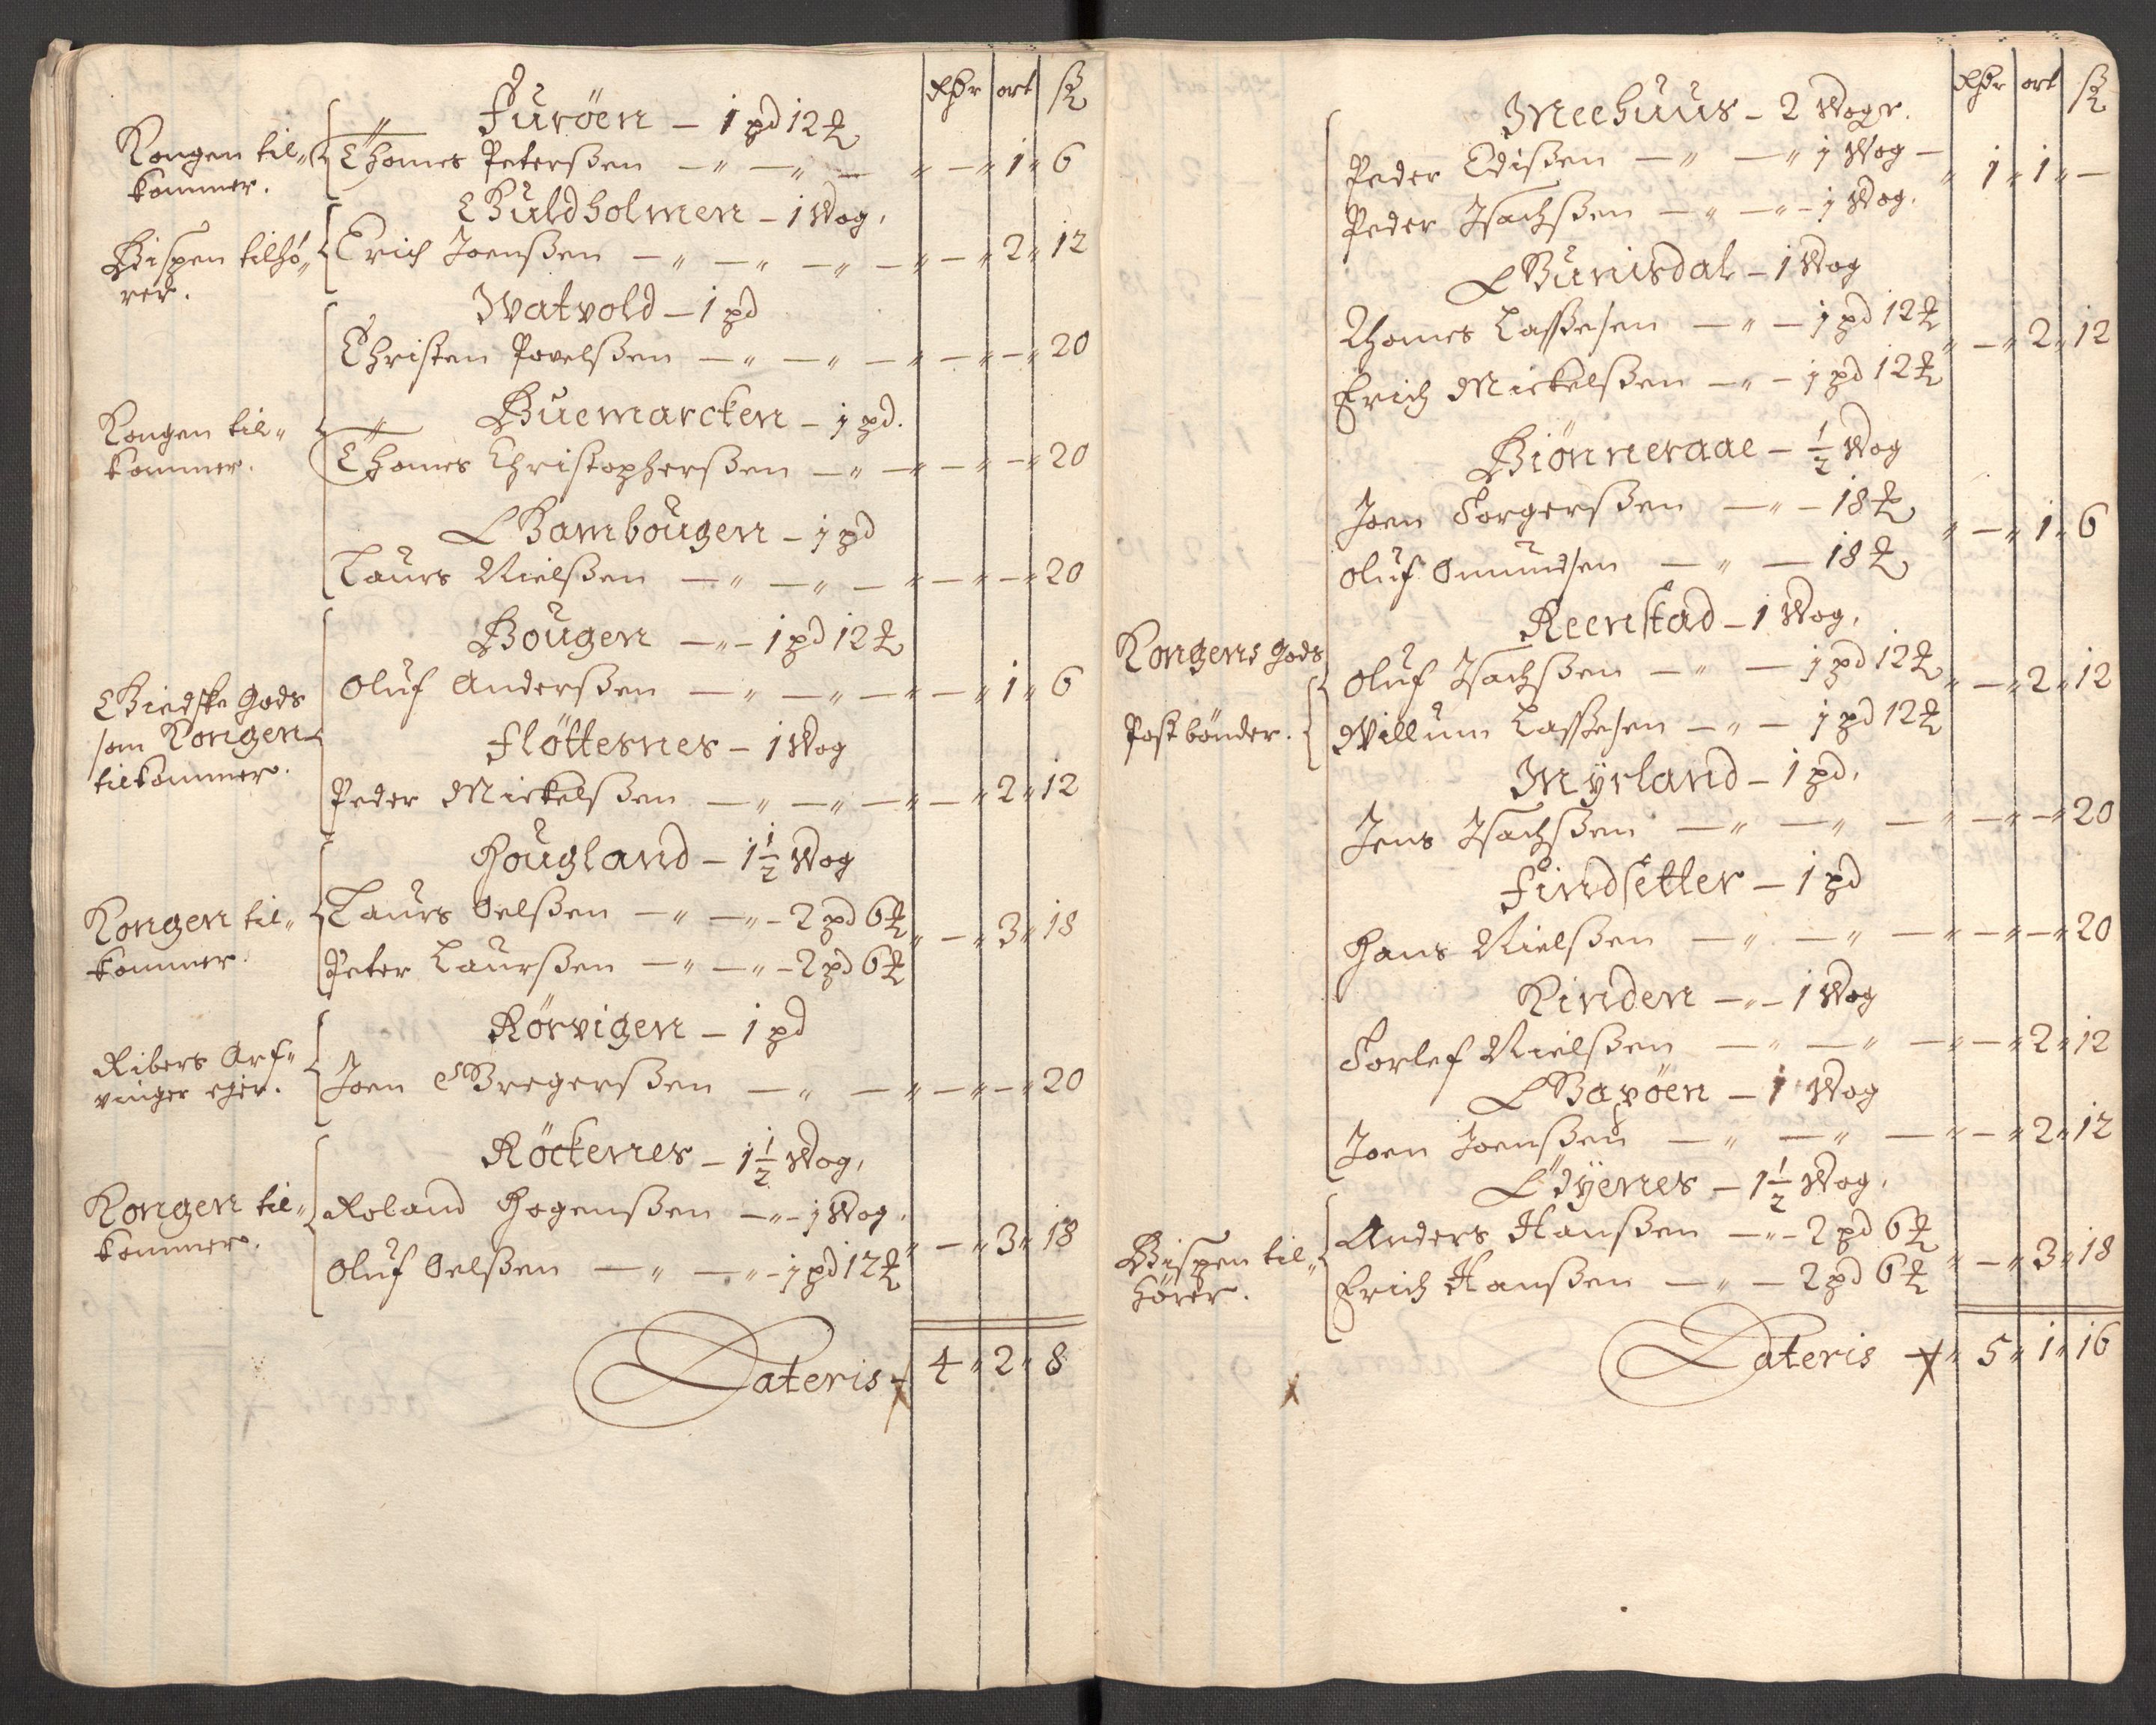 Rdr ort ß
Furöen – 1 pd 12 ℔
Kongen til„
kommer.
Thomes Peterßen – „ – „ – „ – „ 1 „ 6
Guldholmen – 1 Wog,
Bispen tilhö„
rer.
Erich Joenßen – „ – „ – „ – „ – „ 2 „ 12
Watvold – 1 pd
Christen Povelßen – „ – „ – „ – „ – „ 20
Buemarcken – 1 pd.
Kongen til„
kommer.
Thomes Christopherßen – „ – „ – „ – „ 20
Gambougen – 1 pd
Laurs Nielßen – „ – „ – „ – „ – „ 20
Bougen – „ – 1 pd 12 ℔
Oluf Anderßen – „ – „ – „ – „ 1 „ 6
Giedske Gods
som Kongen
tilkommer.
Flöttesnes – 1 Wog
Peder Mickelßen – „ – „ – „ – „ 2 „ 12
Hougland – 1 1/2 Wog
Kongen til„
kommer.
Laurs Oelßen – „ – „ – 2 pd 6 ℔
„ – „ 3 „ 18
Peter Laurßen – „ – „ – 2 pd 6 ℔
Rörvigen – 1 pd
Ribers Arf„
vinger ejer.
Joen Gregerßen – „ – „ – „ – „ 20
Röckenes – 1 1/2 Wog,
Kongen til„
kommer.
Roland Hogenßen – „ – 1 Wog,
„ – „ 3 „ 18
Oluf Oelßen – „ – „ – 1 pd 12 ℔
Lateris – 4 „ 2 „ 8
Rdr ort ß
Meehuus – 2 Wogr.
Peder Edißen – „ – „ 1 Wog –
„ 1 „ 1 „ –
Peder Isachßen – „ – „ – 1 Wog.
Gunisdal – 1 Wog
Thomes Lasseßen – „ – 1 pd 12 ℔
„ – „ 2 „ 12
Erich Mickelßen – „ – 1 pd 12 ℔
Biönneraae – 1/2 Wog
Joen Torgerßen – „ – 18 ℔
„ – „ 1 „ 6
Oluf Omundsen – „ – 18 ℔
Reenstad – 1 Wog,
Kongens Gods
Oluf Isachßen – „ – 1 pd 12 ℔
„ – „ 2 „ 12
Postbönder.
Willum Lasseßen – „ – 1 pd 12 ℔
Myrland – 1 pd,
Jens Isachßen – „ – „ – „ – „ – „ 20
Findsetter – 1 pd
Hans Nielßen – „ – „ – „ – „ – „ 20
Kinden – „ – 1 Wog
Torlef Nielßen – „ – „ – „ – „ 2 „ 12
Gavöen – 1 Wog
Joen Joenßen – „ – „ – „ – „ 2 „ 12
Edyenes – 1 1/2 Wog,
Bispen til„
hörer.
Anders Hanßen – „ – 2 pd 6 ℔
„ – „ 3 „ 18
Erich Hanßen – „ – 2 pd 6 ℔
Lateris – „ 5 „ 1 „ 16